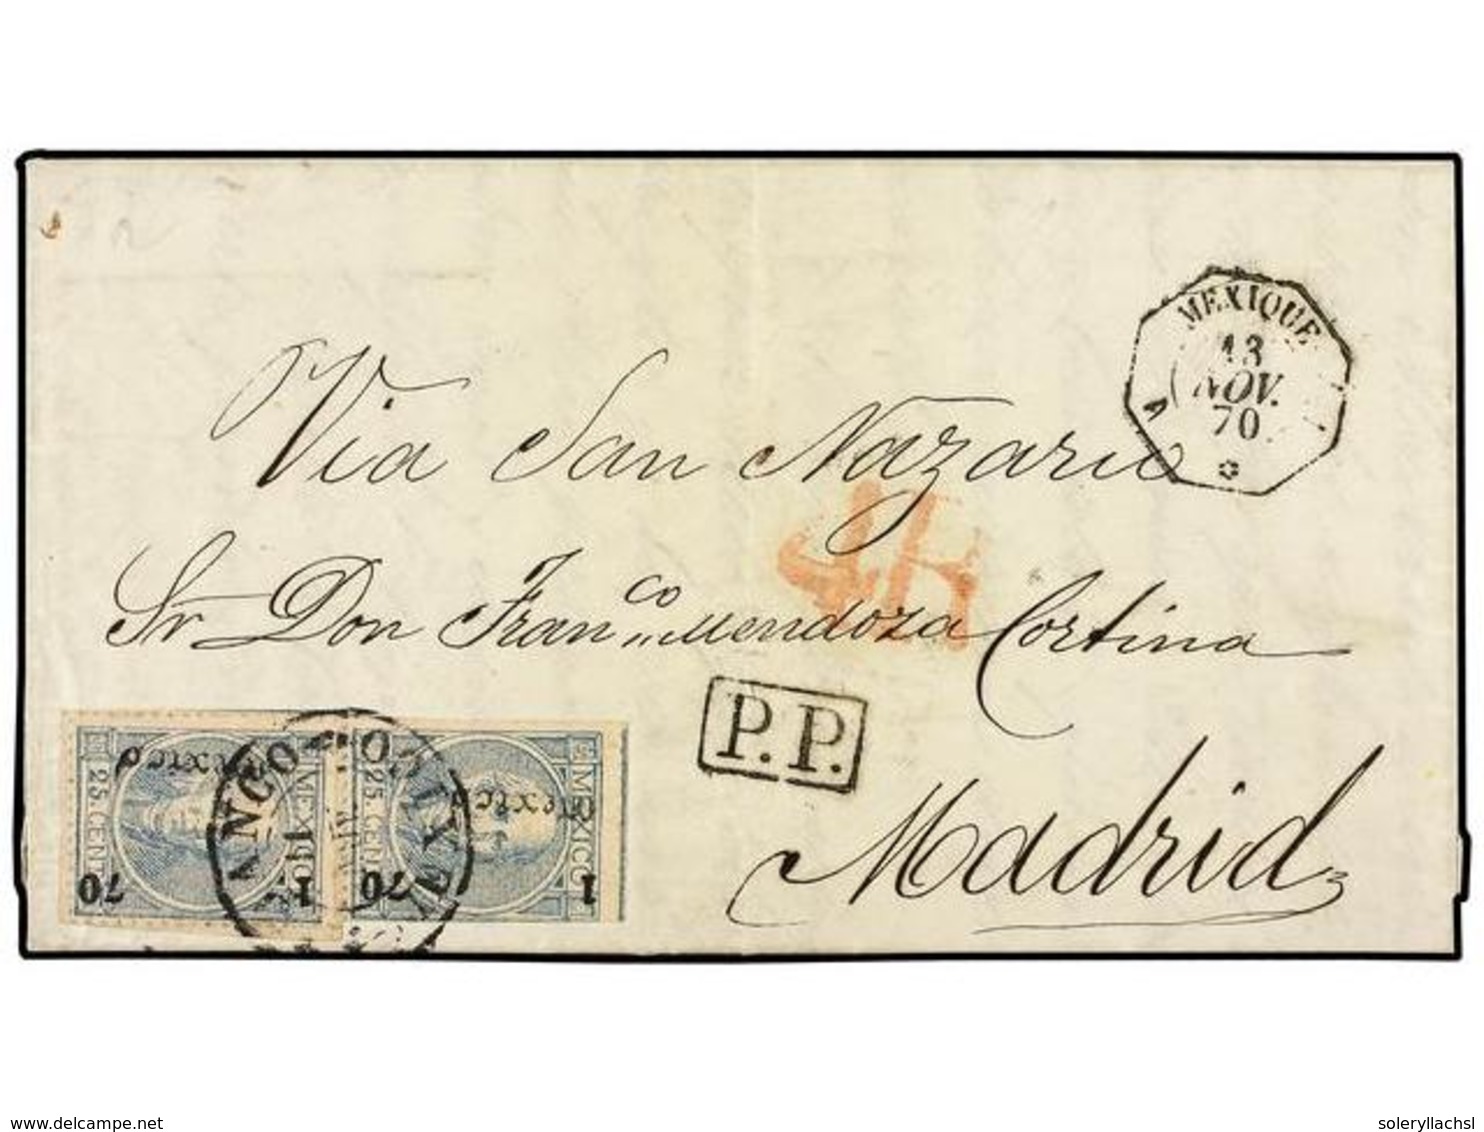 MEXIQUE
13
NOV.
70
Via San Nazario
4R
Sr Don Fran.co Mendoza Cortina
P.P.
Madrid
Mexico
25. CENT.
MEXICO
1
70
Mexico
25. CENT.
MEXICO
1
70
FRANCO MEXICO
delcampe.net
soleryllachsl